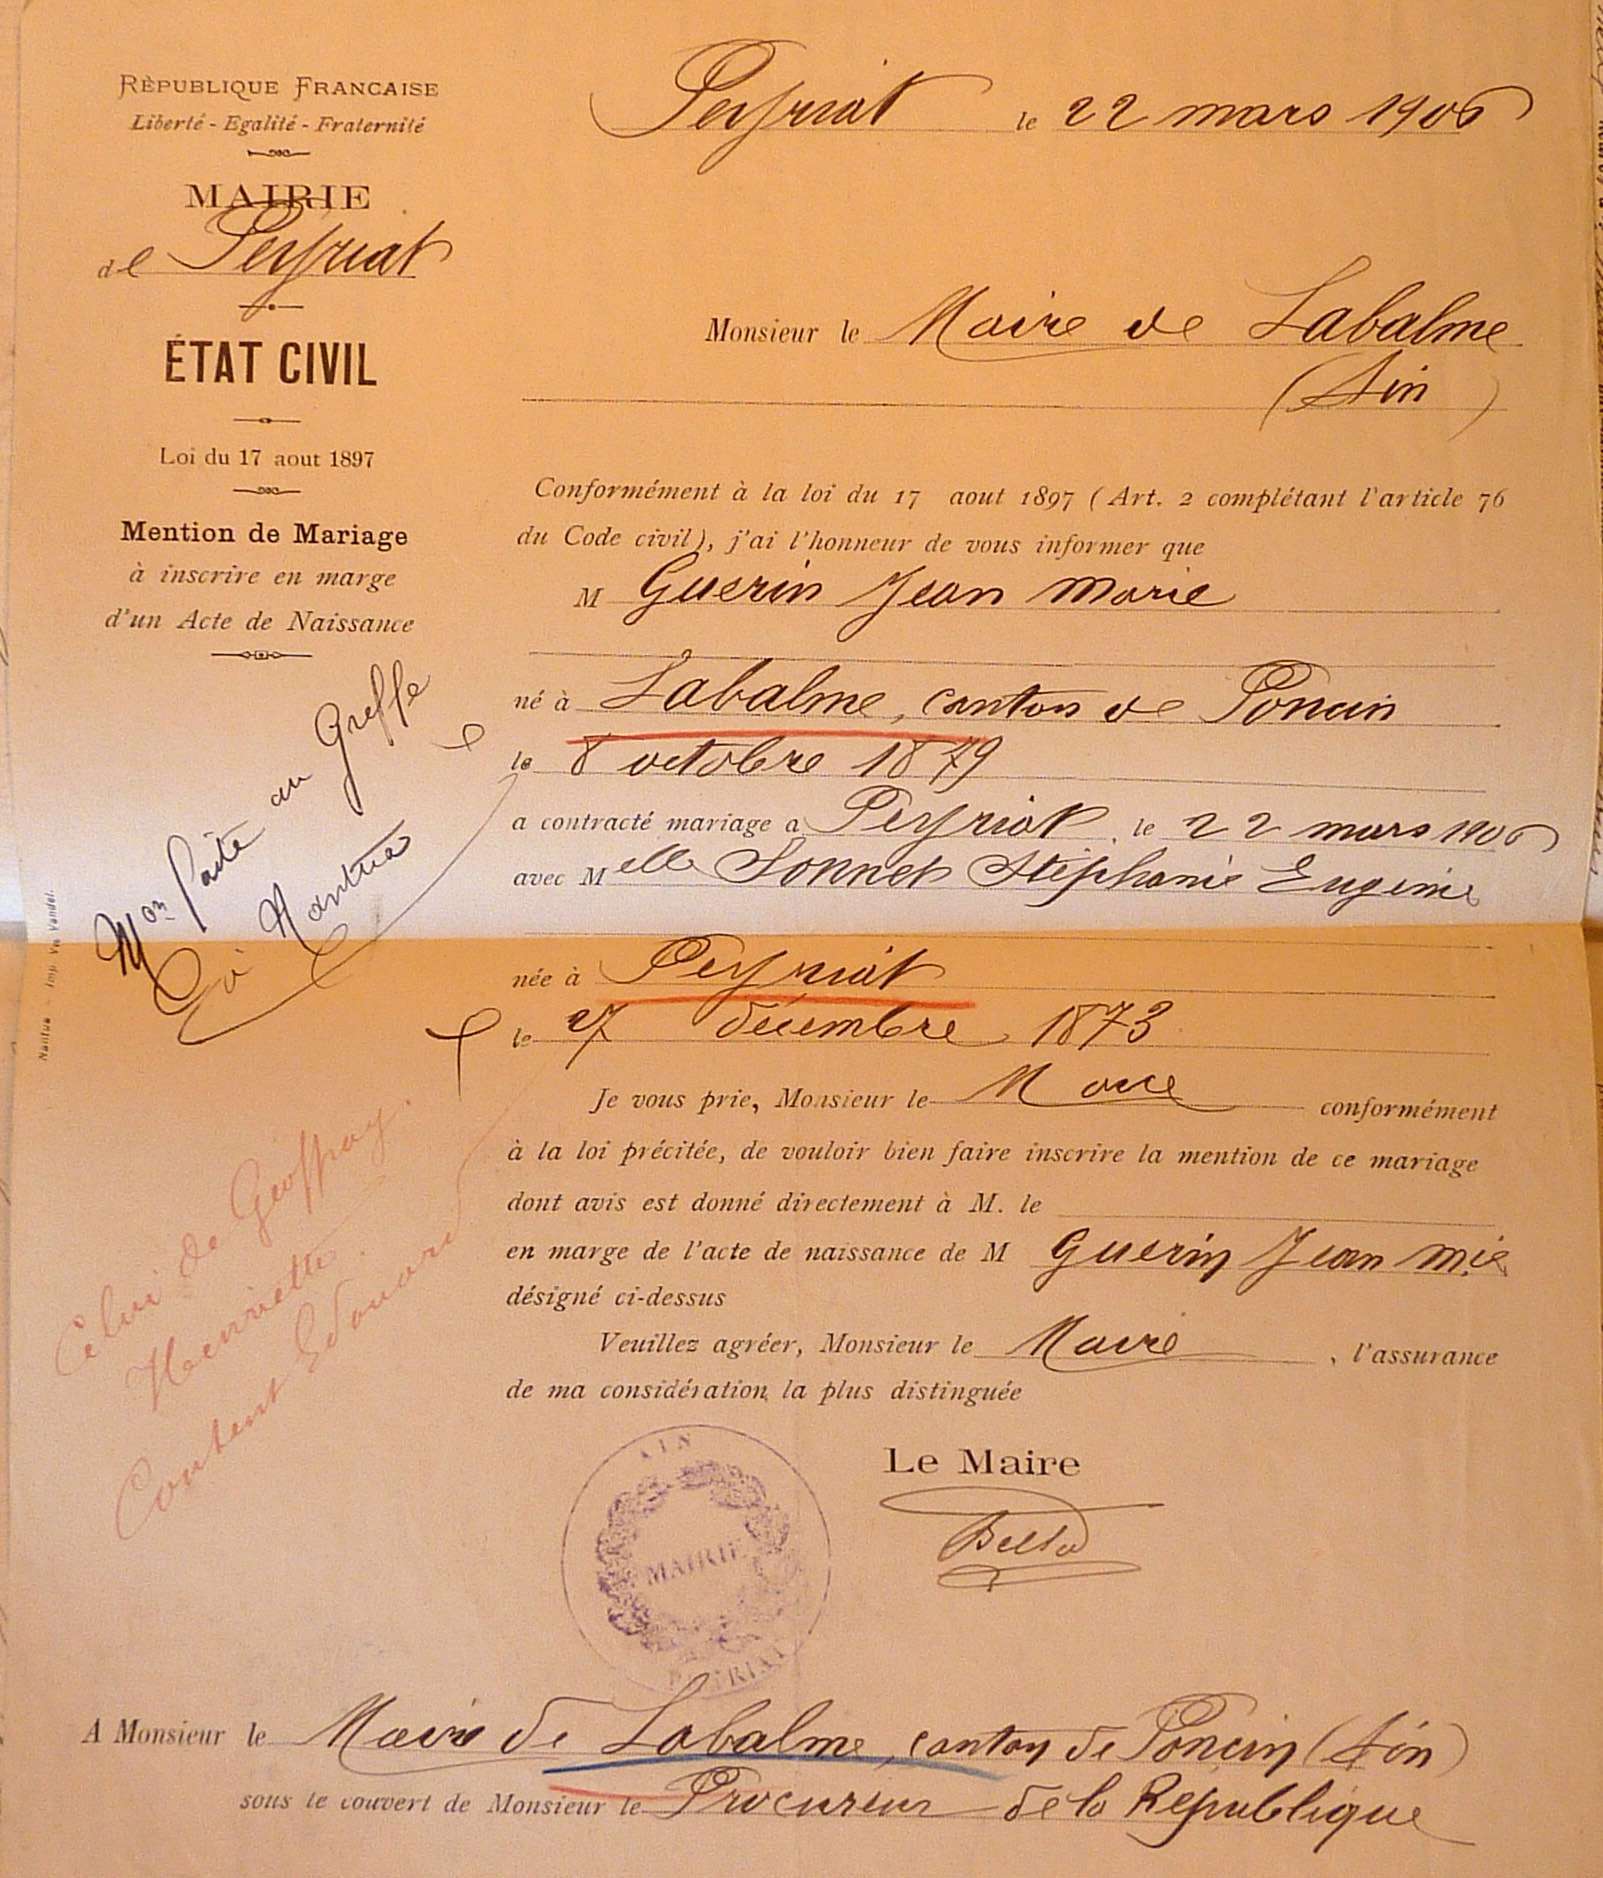 RÉPUBLIQUE FRANCAISE
Liberté - Egalité - Fraternité
MAIRIE
de Peyriat
ÉTAT CIVIL
Loi du 17 aout 1897
Mention de Mariage
à inscrire en marge
d'un Acte de Naissance
Mon faite au Greffe
à Nantua
Celui de Geoffray
Henriette
Content Edouard
Nantua - Imp. Ve Vandel.
Peyriat le 22 mars 1906
Monsieur le Maire de Labalme
(Ain)
Conformément à la loi du 17 aout 1897 (Art. 2 complétant l'article 76
du Code civil), j'ai l'honneur de vous informer que
M Guerin Jean Marie
né à Labalme, canton de Poncin
le 8 octobre 1879
a contracté mariage a Peyriat, le 22 mars 1906
avec Melle Sonnet Stéphanie Eugenie
née à Peyriat
le 27 décembre 1873
Je vous prie, Monsieur le Maire conformément
à la loi précitée, de vouloir bien faire inscrire la mention de ce mariage
dont avis est donné directement à M. le
en marge de l'acte de naissance de M Guerin Jean Mie
désigné ci-dessus
Veuillez agréer, Monsieur le Maire, l'assurance
de ma considération la plus distinguée
Le Maire
AIN
MAIRIE
PEYRIAT
A Monsieur le Maire de Labalme, canton de Poncin (Ain)
sous le couvert de Monsieur le Procureur de la République